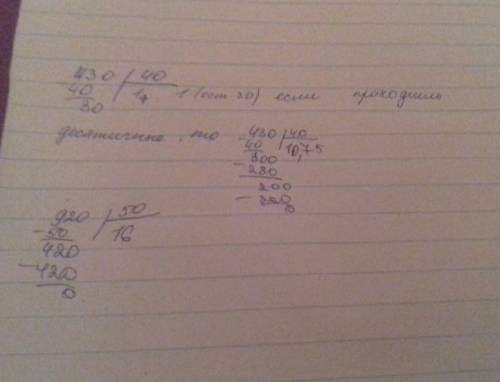 430 | 40
40
30
1 (ост 30) если проходили
десятичные, то
430 | 40
40 10,75
300
- 280
200
- 200
0
920 | 50
- 50 16
420
- 420
0